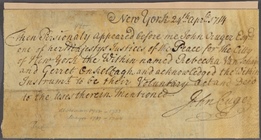 New York 24th April 1719
Then Personally appeared before me John Cruger Esq
one of her Majestys Justices of the Peace for the City
of New York the Within named Elebecka Van
and Gerret Onclebagh and acknowledged the
Instrument to be their Voluntary act and
to the uses therein Mentioned
John Cruger